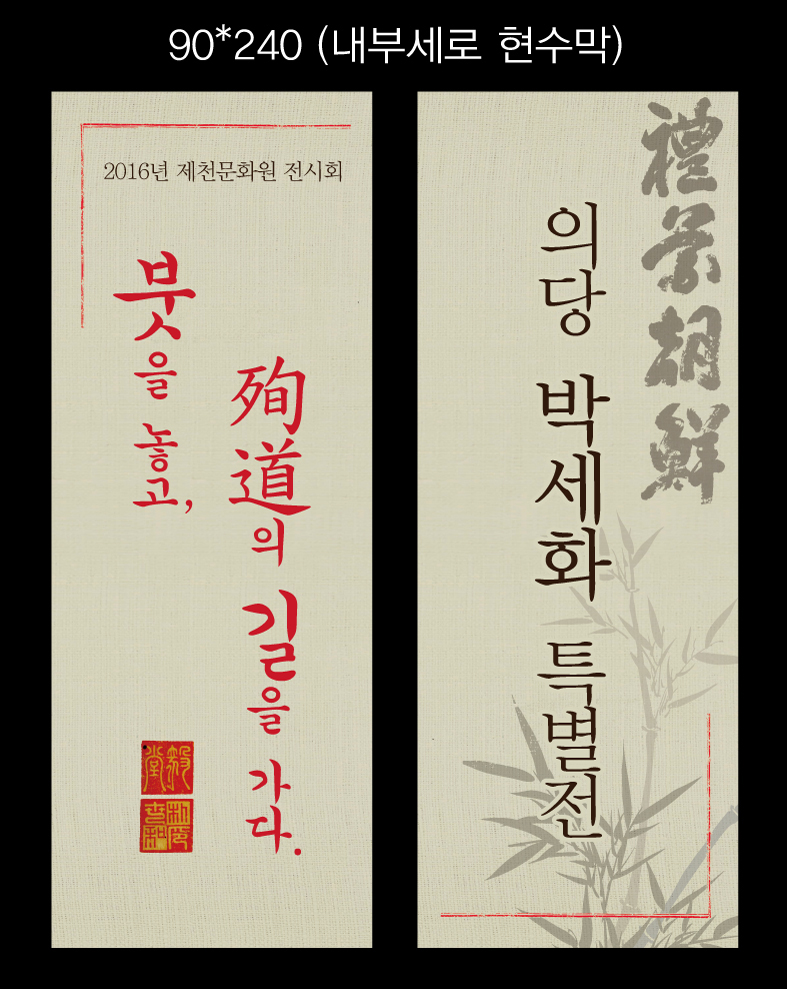 90*240 (내부세로 현수막)
2016년 제천문화원 전시회
붓을 놓고,
殉道의 길을 가다.
毅堂
朴世和印
禮義朝鮮
의당 박세화 특별전